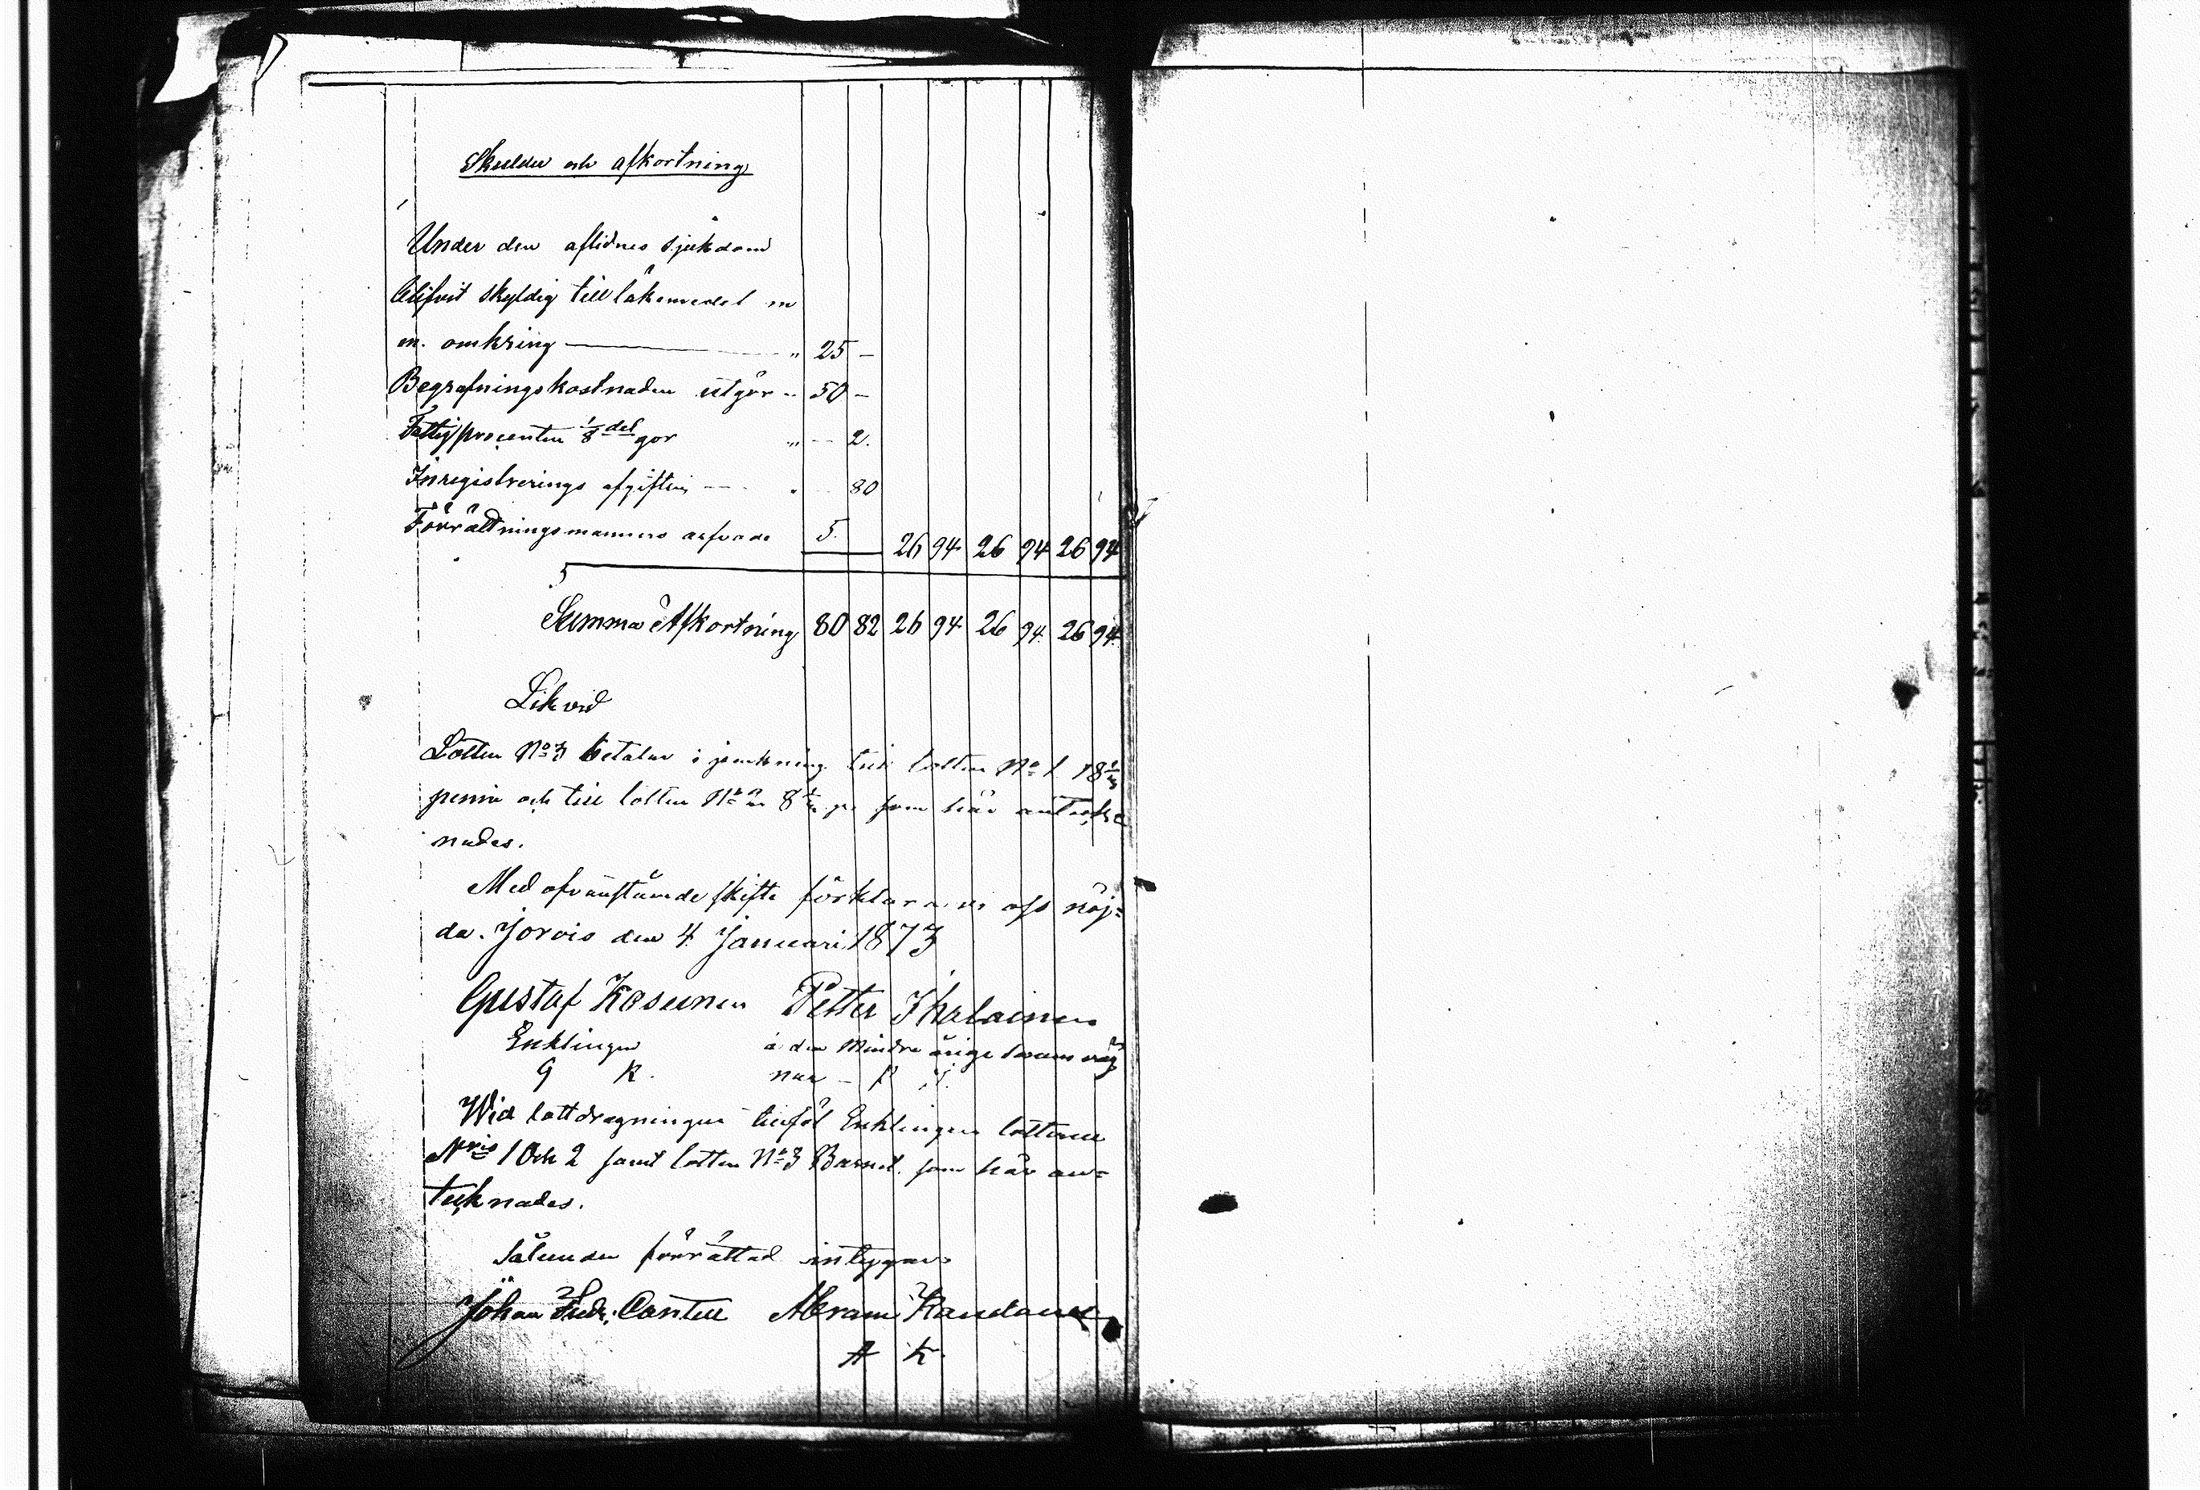 Skulder och afkortning
Under den aflidnes sjukdom
blifvit skyldig till läkemedel m
m. omkring — " 25 —
Begrafningskostnaden utgör " 50 —
Fattigprocenten 1/8 del gör " — 2.
Inregistrerings afgiften — " — 80
Förrättningsmannens arfvode 5. 26 94 26 94 26 94
Summa Afkortning 80 82 26 94 26 94 26 94
Likvid
Lotten No 3 betalar i jemkning till lotten No 1 18
penni och till lotten No 2 8 pi som här anteck
nades.
Med ofvanstående skifte förklara vi oss nöj=
da. Jorois den 4 Januari 1873
Gustaf Kosunen Petter Ihalainen
Enklingen å den Mindre åriga barnens väg
G K. nar – P I.
Wid lottdragningen tillföl Enklingen lotterne
Nris 1 Och 2 samt lotten No 3 Barnet. som här an=
tecknades.
Sålunda förrättad intygar
Johan Fredr. Cantell Abram Kaudanen
A K.